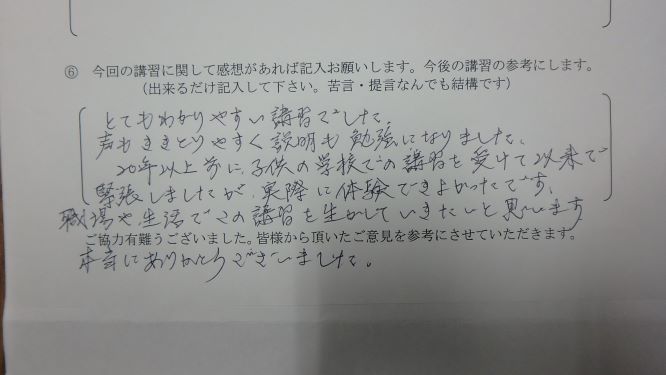 ⑥ 今回の講習に関して感想があれば記入お願いします。今後の講習の参考にします。
(出来るだけ記入して下さい。苦言・提言なんでも結構です)
とてもわかりやすい講習でした。
声もききとりやすく説明も勉強になりました。
20年以上前に、子供の学校での講習を受けて以来で
緊張しましたが、実際に体験できよかったです。
職場や生活でこの講習を生かしていきたいと思います
ご協力有難うございました。皆様から頂いたご意見を参考にさせていただきます。
本当にありがとうございました。